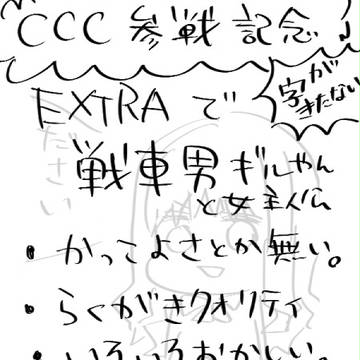 CCC 参戦記念
字が
きたない
EXTRAで
戦車男ギルやん
と女主人公
ださい
・かっこよさとか無い。
・らくがきクオリティ
・いろいろおかしい。